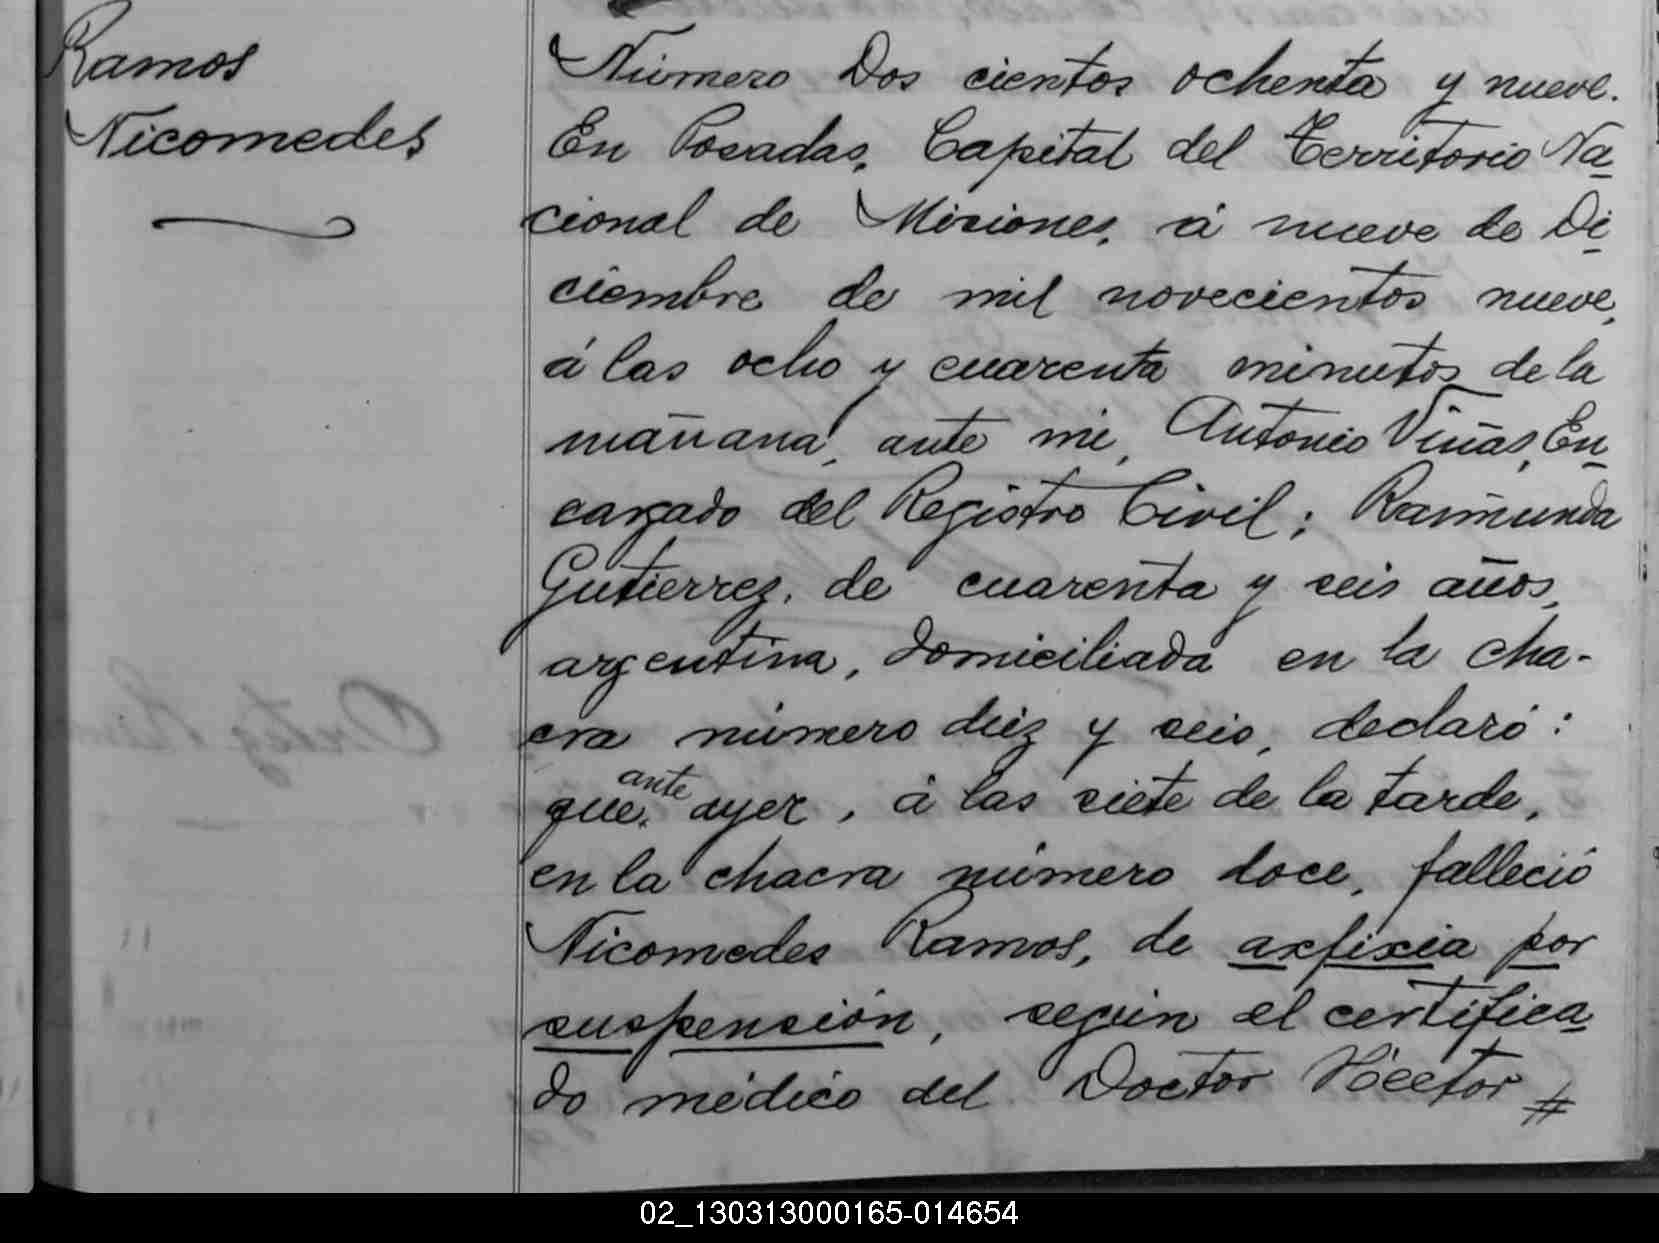 Ramos
Nicomedes
Número Dos cientos ochenta y nueve.
En Posadas, Capital del Territorio Na
cional de Misiones, á nueve de Di
ciembre de mil novecientos nueve,
á las ocho y cuarenta minutos de la
mañana, ante mi, Antonio Viñas, En
cargado del Registro Civil; Raimunda
Gutierrez, de cuarenta y seis años,
argentina, domiciliada en la cha-
cra número diez y seis, declaró:
que, ante ayer, á las siete de la tarde,
en la chacra número doce, falleció
Nicomedes Ramos, de axfixia por
suspensión, según el certifica
do médico del Doctor Héctor #
02_130313000165-014654